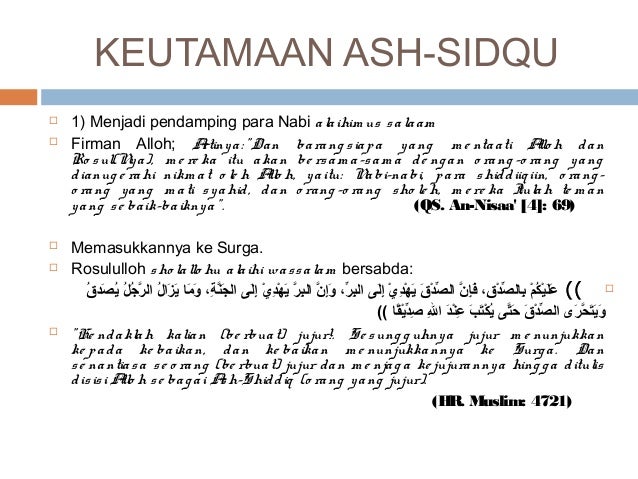 KEUTAMAAN ASH-SIDQU
1) Menjadi pendamping para Nabi alaihimus salaam
Firman Alloh; Artinya:"Dan barangsiapa yang mentaati Alloh dan
Rosul(Nya), mereka itu akan bersama-sama dengan orang-orang yang
dianugerahi nikmat oleh Alloh, yaitu: Nabi-nabi, para shiddiiqiin, orang-
orang yang mati syahid, dan orang-orang sholeh, mereka Itulah teman
yang sebaik-baiknya". (QS. An-Nisaa' [4]: 69)
Memasukkannya ke Surga.
Rosululloh sholallohu alaihi wassalam bersabda:
(( عَلَيْكُمْ بِالصِّدْقِ، فَإِنَّ الصِّدْقَ يَهْدِيْ إِلَى البِرِّ، وَإِنَّ البِرَّ يَهْدِيْ إِلَى الجَنَّةِ، وَمَا يَزَالُ الرَّجُلُ يُصَدقُ
وَيَتَحَّرَى الصِّدْقَ حَتَّى يُكْتَبَ عِنْدَ اللهِ صِدِّيْقًا ((
"Hendaklah kalian (berbuat) jujur!. Sesungguhnya jujur menunjukkan
kepada kebaikan, dan kebaikan menunjukkannya ke Surga. Dan
senantiasa seorang (berbuat) jujur dan menjaga kejujurannya hingga ditulis
disisi Alloh sebagai Ash-Shiddiq (orang yang jujur).
(HR. Muslim: 4721)